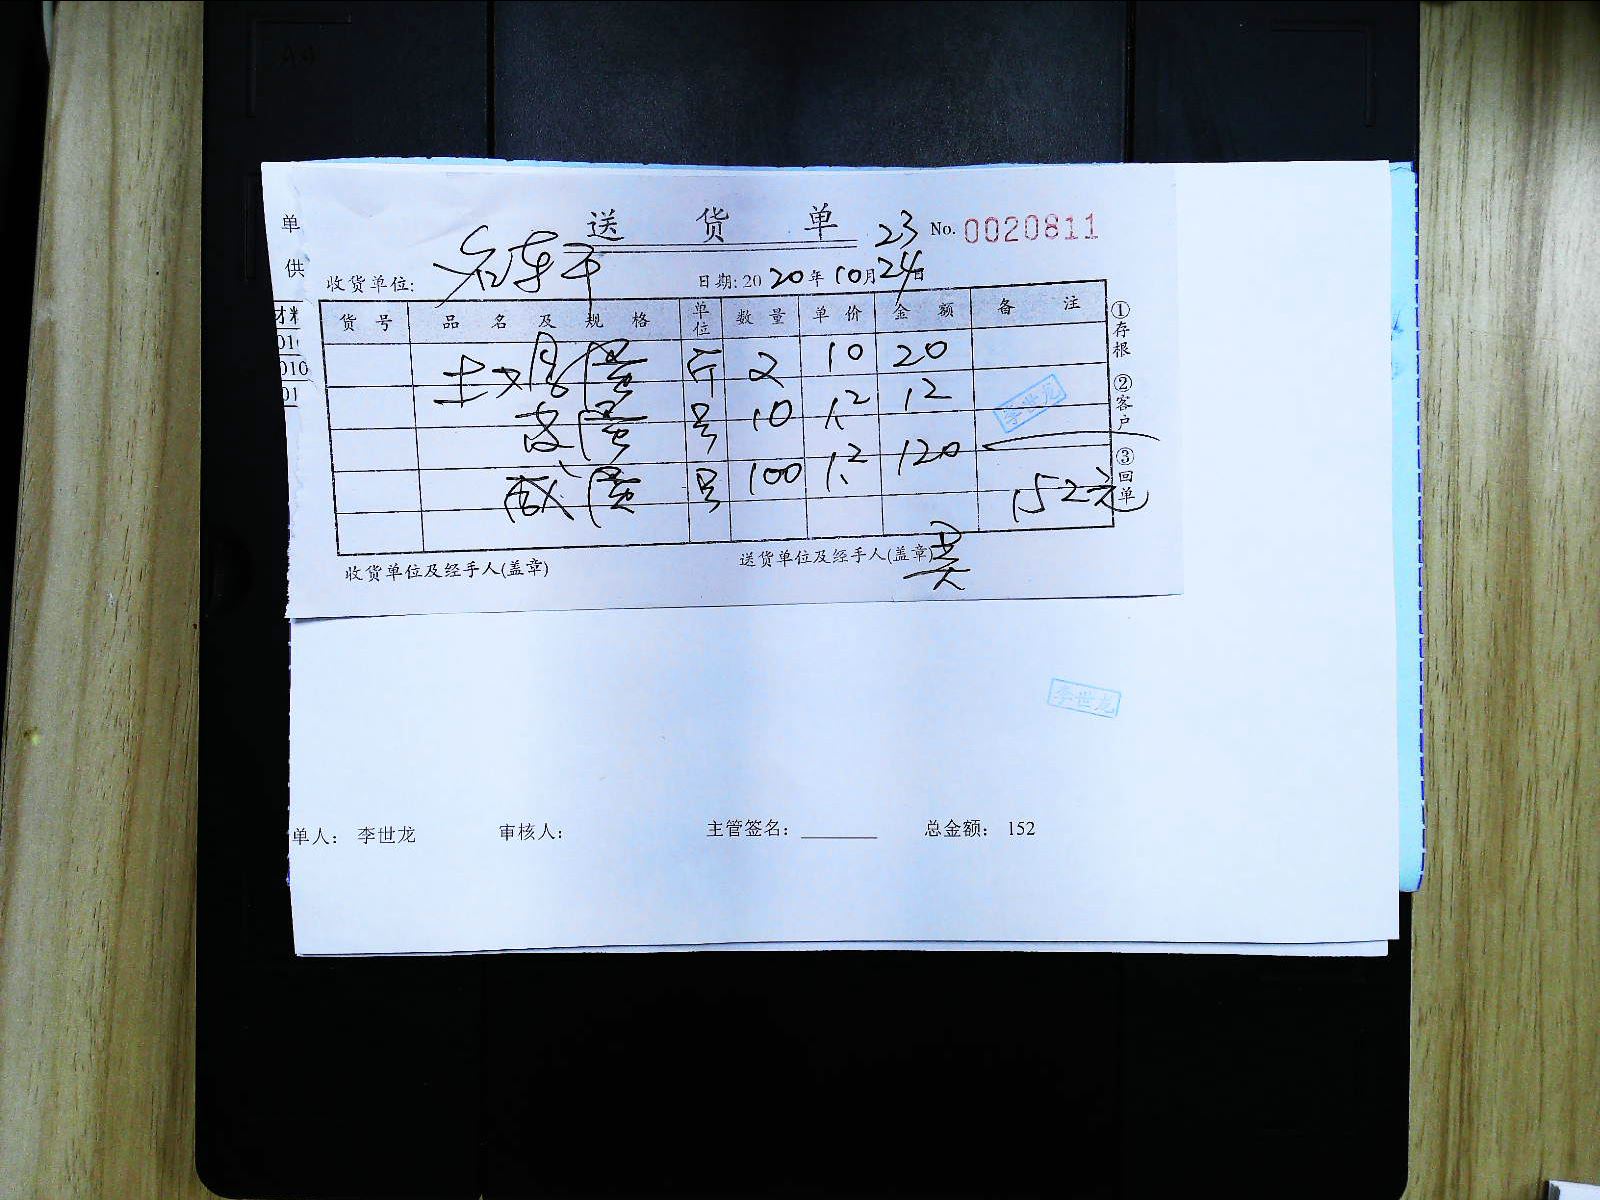 单
供
材料
送 货 单 23 No. 0020811
收货单位:
日期: 2020年10月24日
货号 品名及规格 单位 数量 单价 金额 备注
土鸡蛋 斤 2 10 20
皮蛋 号 10 1.2 12
咸蛋 号 100 1.2 120
152元
①存根 ②客户 ③回单
李世龙
收货单位及经手人(盖章)
送货单位及经手人(盖章)
李世龙
单人: 李世龙 审核人: 主管签名: 总金额: 152